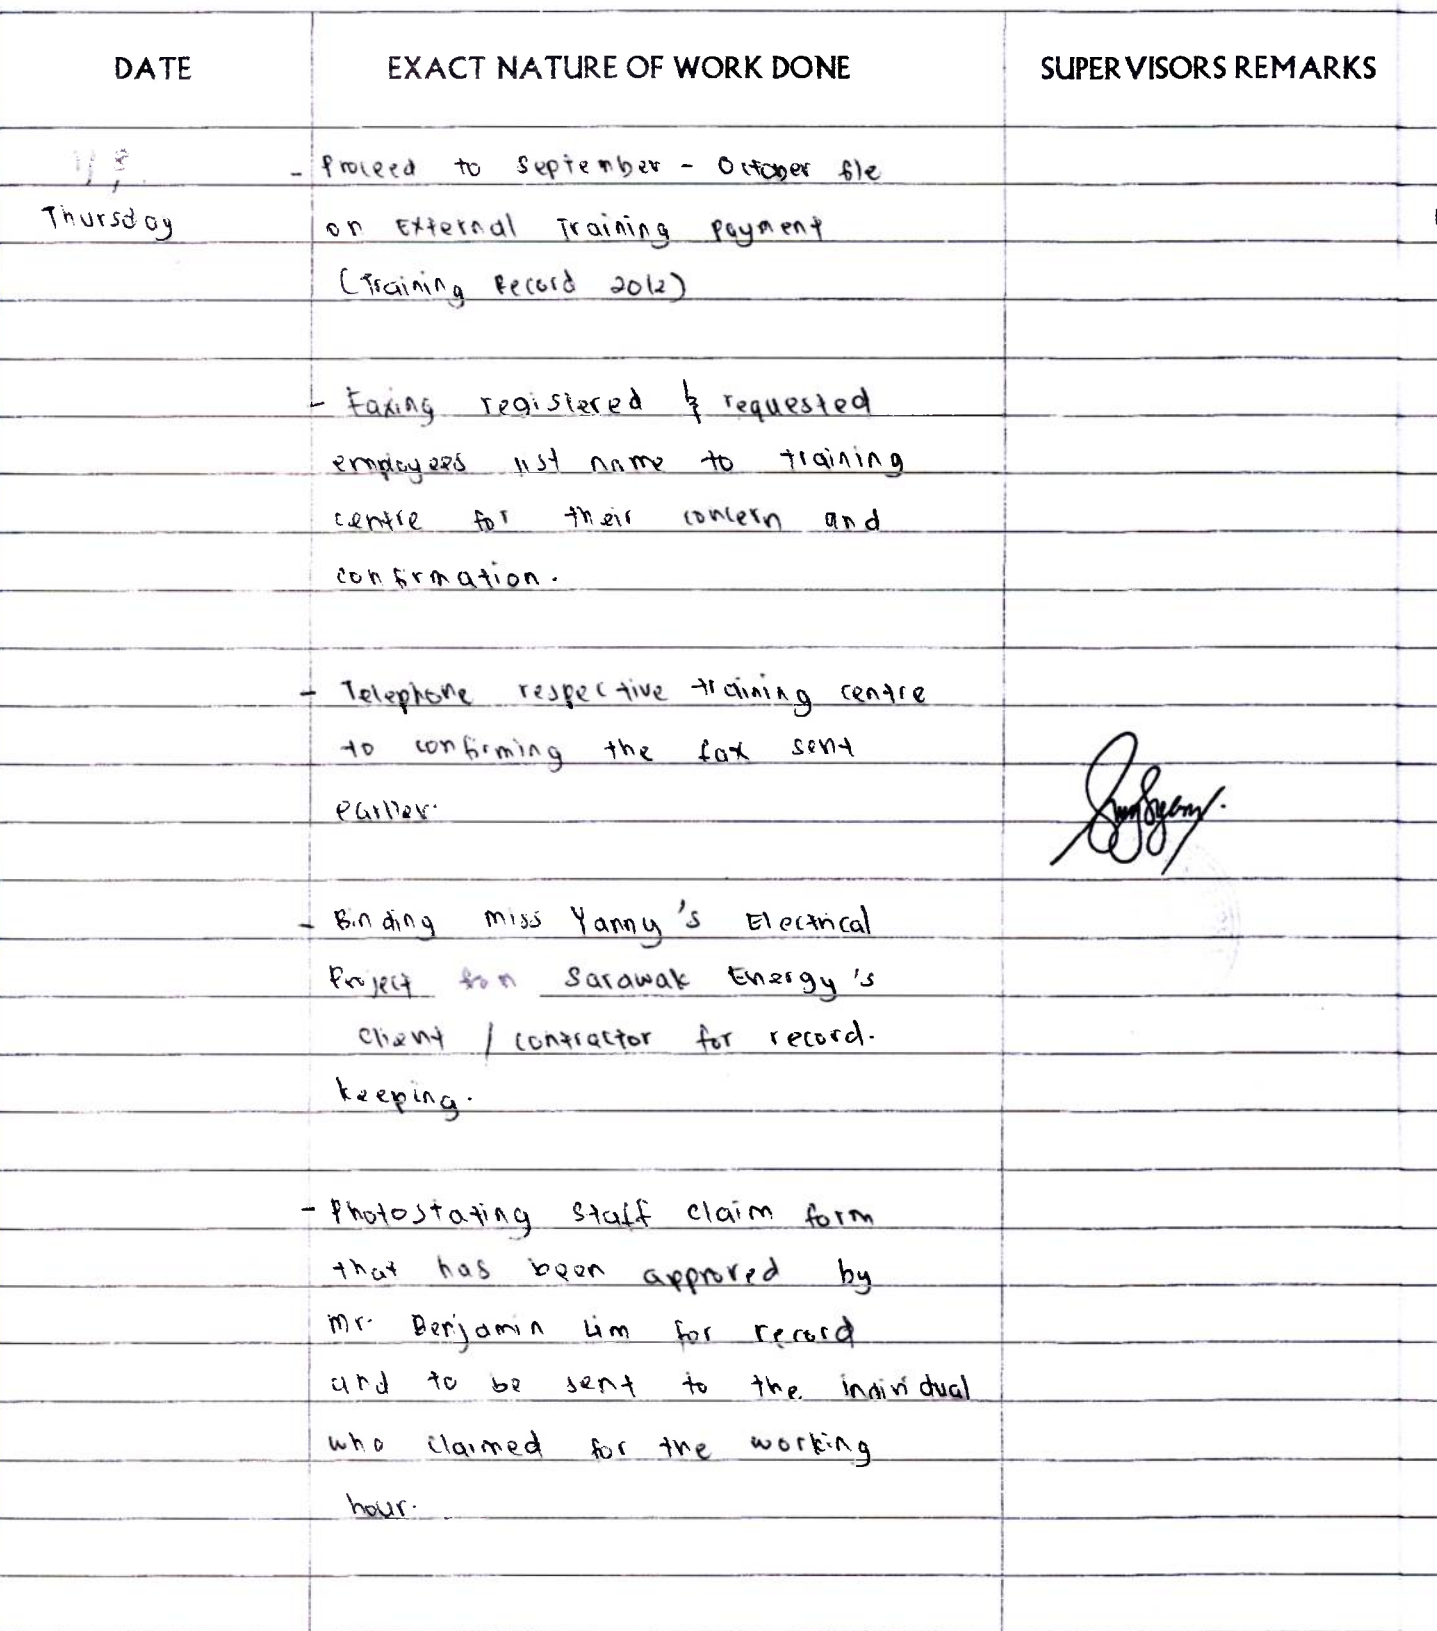 DATE EXACT NATURE OF WORK DONE SUPERVISORS REMARKS
- Proceed to September - October file
Thursday
on External Training Payment
(Training Record 2012)
- Faxing registered & requested
employees list name to training
centre for their concern and
confirmation.
- Telephone respective training centre
to confirming the fax sent
earlier.
- Binding miss Yanny's Electrical
Project from Sarawak Energy's
client / contractor for record.
keeping.
- Photostating staff claim form
that has been approved by
Mr. Benjamin Lim for record
and to be sent to the individual
who claimed for the working
hour.